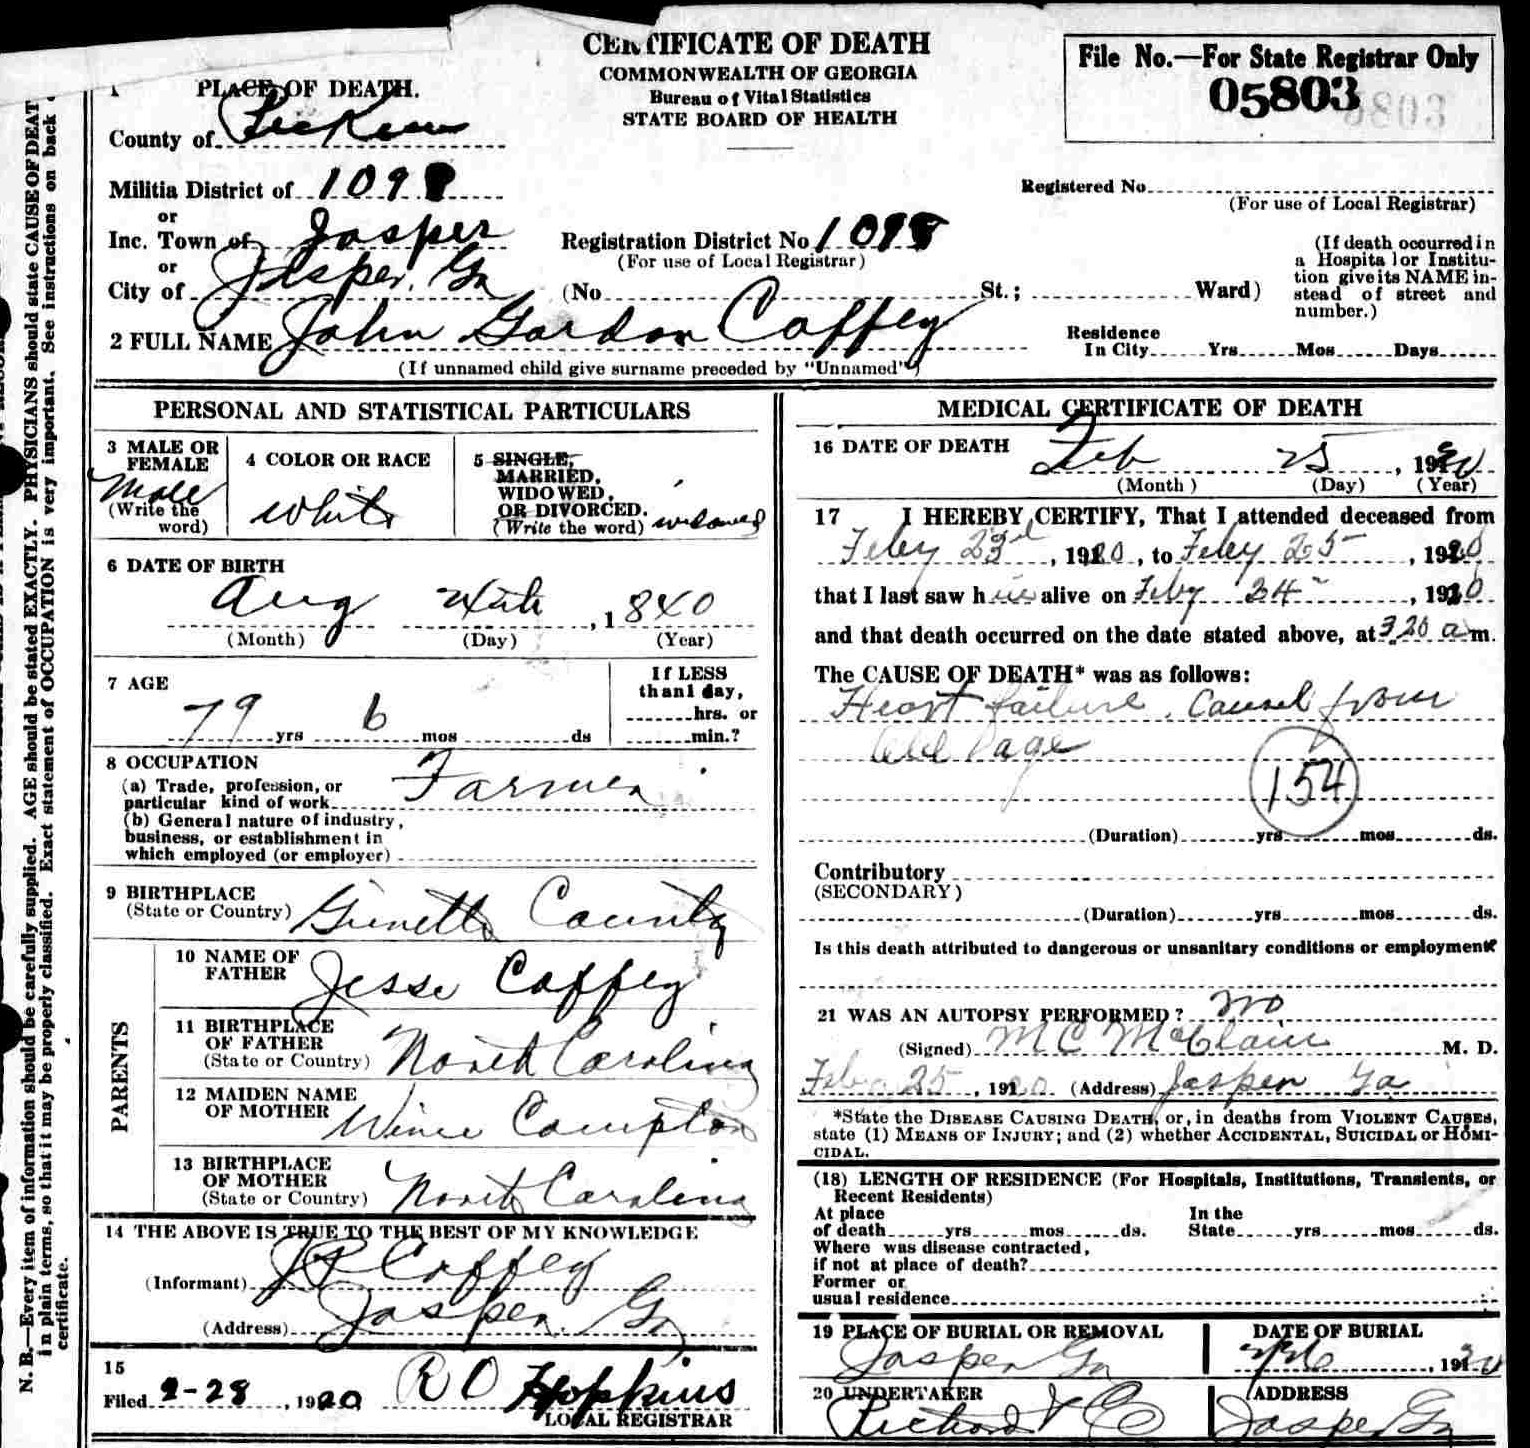 CERTIFICATE OF DEATH
COMMONWEALTH OF GEORGIA
Bureau of Vital Statistics
STATE BOARD OF HEALTH
File No.—For State Registrar Only
05803
1 PLACE OF DEATH.
County of Pickens
Militia District of 1098
or
Inc. Town of Jasper
or
City of Jasper, Ga
Registration District No 1098
(For use of Local Registrar)
(No St.; Ward)
Registered No
(For use of Local Registrar)
(If death occurred in
a Hospital or Institu-
tion give its NAME in-
stead of street and
number.)
2 FULL NAME John Gordon Coffey
(If unnamed child give surname preceded by "Unnamed")
Residence
In City Yrs Mos Days
PERSONAL AND STATISTICAL PARTICULARS
3 MALE OR
FEMALE
Male
(Write the
word)
4 COLOR OR RACE
White
5 SINGLE,
MARRIED,
WIDOWED,
OR DIVORCED.
(Write the word) widowed
6 DATE OF BIRTH
Aug 1840
(Month) (Day) (Year)
7 AGE
79 yrs 6 mos ds
If LESS
than 1 day,
hrs. or
min.?
8 OCCUPATION
(a) Trade, profession, or
particular kind of work Farmer
(b) General nature of industry,
business, or establishment in
which employed (or employer)
9 BIRTHPLACE
(State or Country) Gwinette County
PARENTS
10 NAME OF
FATHER Jesse Coffey
11 BIRTHPLACE
OF FATHER
(State or Country) North Carolina
12 MAIDEN NAME
OF MOTHER Compton
13 BIRTHPLACE
OF MOTHER
(State or Country) North Carolina
14 THE ABOVE IS TRUE TO THE BEST OF MY KNOWLEDGE
(Informant) Coffey
(Address) Jasper, Ga
15
Filed 2-28, 1920 R O Hopkins
LOCAL REGISTRAR
MEDICAL CERTIFICATE OF DEATH
16 DATE OF DEATH Feb 25, 1920
(Month) (Day) (Year)
17 I HEREBY CERTIFY, That I attended deceased from
Feby 23rd, 1920, to Feby 25, 1920
that I last saw him alive on Feby 24, 1920
and that death occurred on the date stated above, at 3 20 a m.
The CAUSE OF DEATH* was as follows:
Heart failure, Caused from
old age
154
(Duration) yrs mos ds.
Contributory
(SECONDARY)
(Duration) yrs mos ds.
Is this death attributed to dangerous or unsanitary conditions or employment?
21 WAS AN AUTOPSY PERFORMED? No
(Signed) M C McClain M. D.
25, 1920 (Address) Jasper Ga
*State the DISEASE CAUSING DEATH, or, in deaths from VIOLENT CAUSES,
state (1) MEANS OF INJURY; and (2) whether ACCIDENTAL, SUICIDAL or HOMI-
CIDAL.
(18) LENGTH OF RESIDENCE (For Hospitals, Institutions, Transients, or
Recent Residents)
At place
of death yrs mos ds.
In the
State yrs mos ds.
Where was disease contracted,
if not at place of death?
Former or
usual residence
19 PLACE OF BURIAL OR REMOVAL
Jasper Ga
DATE OF BURIAL
2/26, 1920
20 UNDERTAKER
ADDRESS
Jasper Ga
N. B.—Every item of information should be carefully supplied. AGE should be stated EXACTLY. PHYSICIANS should state CAUSE OF DEATH
in plain terms, so that it may be properly classified. Exact statement of OCCUPATION is very important. See instructions on back
certificate.